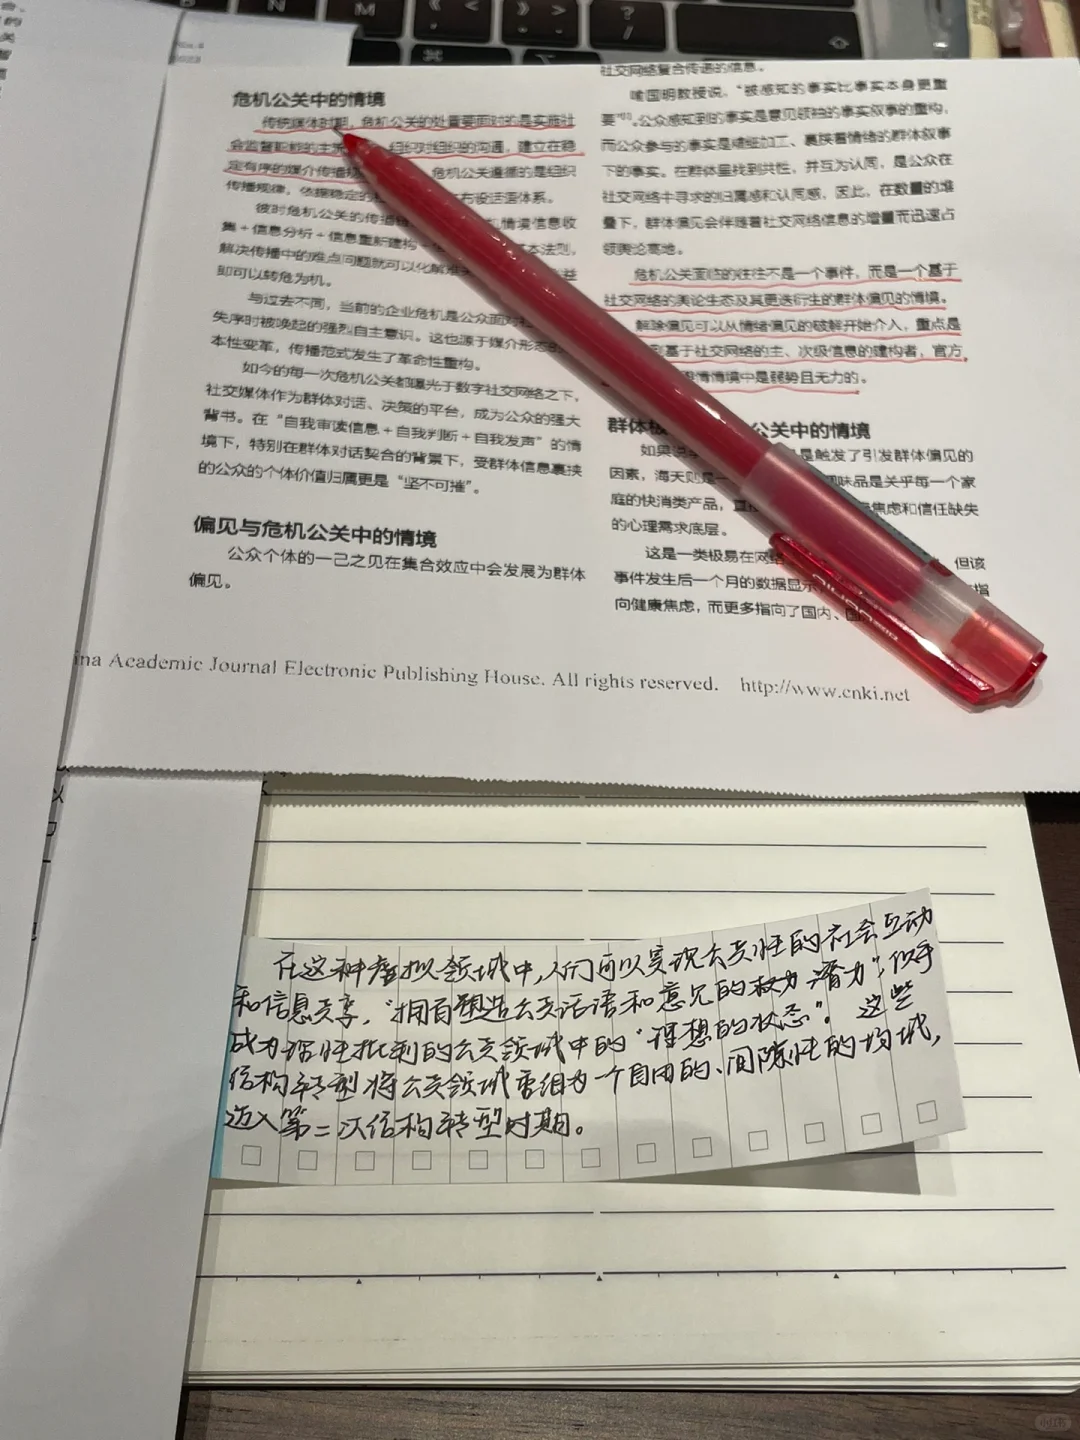 危机公关中的情境
传统媒体时期，危机公关的处置要面对的是实施社
会监督职能的主
组织对组织的沟通，建立在稳
定有序的媒介传播规
危机公关遵循的是组织
传播规律，依据稳定的
布设话语体系。
彼时危机公关的传播
情境信息收
集+信息分析+信息重新建构+
本法则，
解决传播中的难点问题就可以化解
即可以转危为机。
与过去不同，当前的企业危机是公众面对
失序时被唤起的强烈自主意识。这也源于媒介形态的
本性变革，传播范式发生了革命性重构。
如今的每一次危机公关都曝光于数字社交网络之下，
社交媒体作为群体对话、决策的平台，成为公众的强大
背书。在“自我审读信息+自我判断+自我发声”的情
境下，特别在群体对话契合的背景下，受群体信息裹挟
的公众的个体价值归属更是“坚不可摧”。
偏见与危机公关中的情境
公众个体的一己之见在集合效应中会发展为群体
偏见。
社交网络复合传递的信息。
喻国明教授说，“被感知的事实比事实本身更重
要”。公众感知到的事实是意见领袖的事实叙事的重构，
而公众参与的事实是精细加工、裹挟着情绪的群体叙事
下的事实。在群体里找到共性，并互为认同，是公众在
社交网络中寻求的归属感和认同感，因此，在数量的堆
叠下，群体偏见会伴随着社交网络信息的增量而迅速占
领舆论高地。
危机公关面临的往往不是一个事件，而是一个基于
社交网络的舆论生态及其更迭衍生的群体偏见的情境。
解除偏见可以从情绪偏见的破解开始介入，重点是
基于社交网络的主、次级信息的建构者，官方
情境中是弱势且无力的。
群体极
公关中的情境
如果说
是触发了引发群体偏见的
因素，海天则是一
调味品是关乎每一个家
庭的快消类产品，直
焦虑和信任缺失
的心理需求底层。
这是一类极易在网络
但该
事件发生后一个月的数据显示，
指
向健康焦虑，而更多指向了国内、国
ina Academic Journal Electronic Publishing House. All rights reserved. http://www.cnki.net
在这种虚拟领域中，人们可以实现公共性的社会互动
和信息共享，“拥有塑造公共话语和意见的权力潜力”，似乎
成为理性批判的公共领域中的“理想的状态”。这些
结构转型将公共领域重组为一个自由的、间隙性的场域，
迈入第二次结构转型时期。
小红书